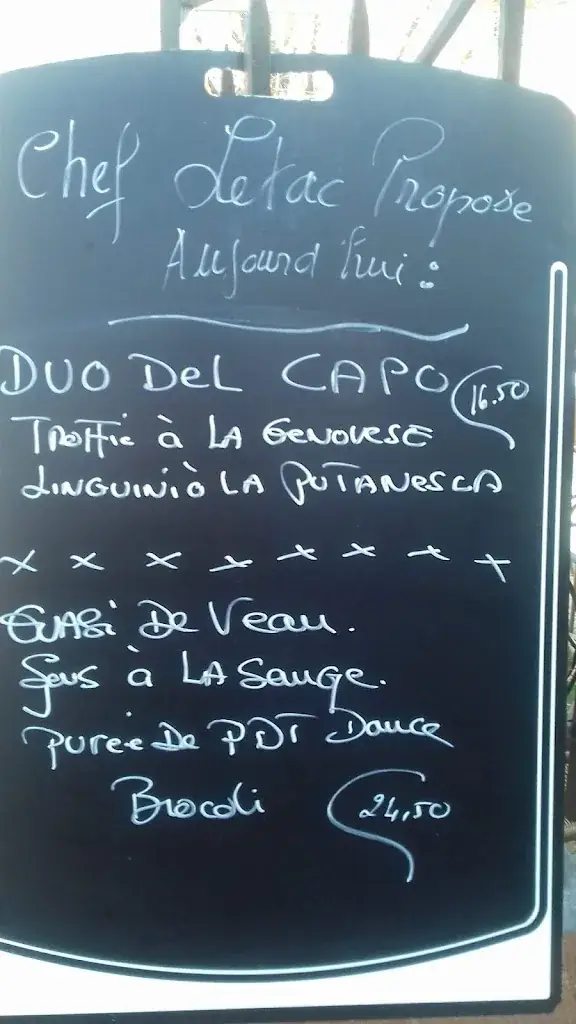 Chef Letac Propose
Aujourd'hui :
DUO DEL CAPO 16.50
TROFFIE à LA GENOVESE
LINGUINI à LA PUTANESCA
x x x x x x x x
QUASI De Veau.
Jus à LA Sauge.
Purée De PDT Douce
Brocoli 24,50